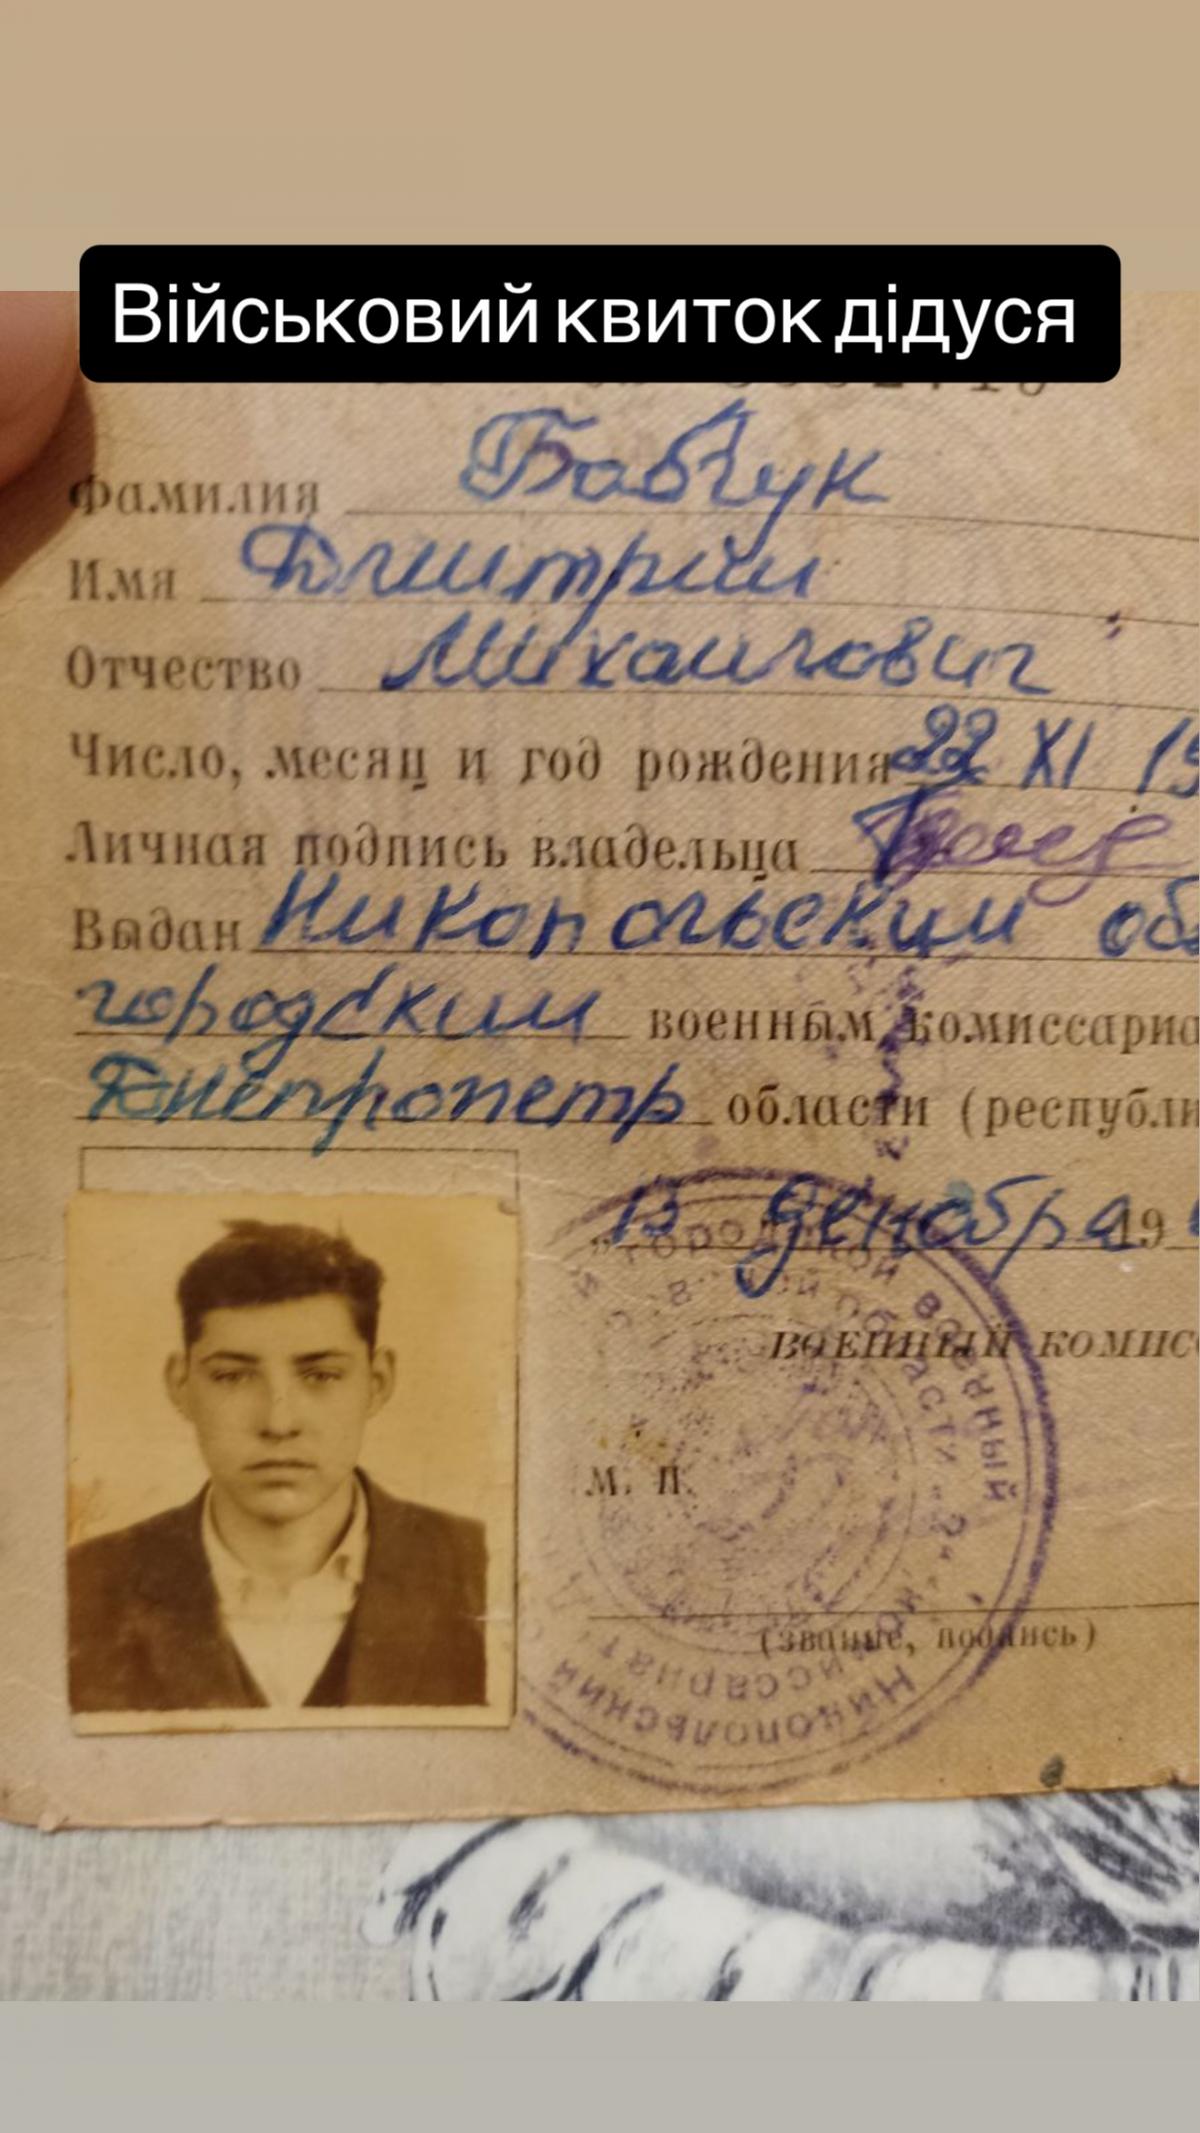 Військовий квиток дідуся
Фамилия Бабчук
Имя Дмитрий
Отчество Михайлович
Число, месяц и год рождения 22 XI 19
Личная подпись владельца
Выдан Никопольским об
городским военным комиссариа
Днепропетр области (республи
13 декабря 19
военный комисс
М. П.
(звание, подпись)
Никопольский городской военный
комиссариат
области